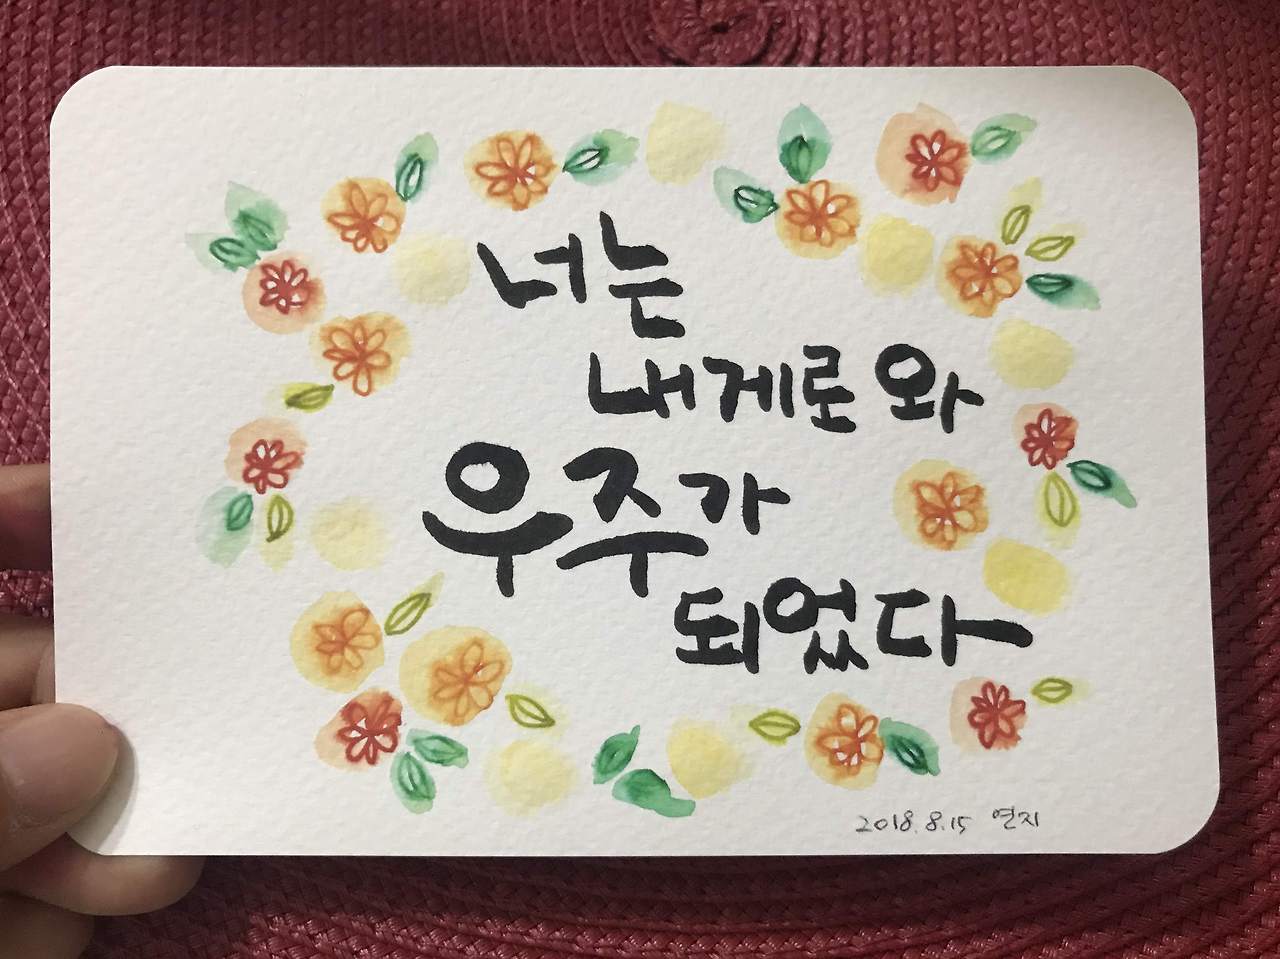 너는
내게로 와
우주가
되었다
2018.8.15 연지